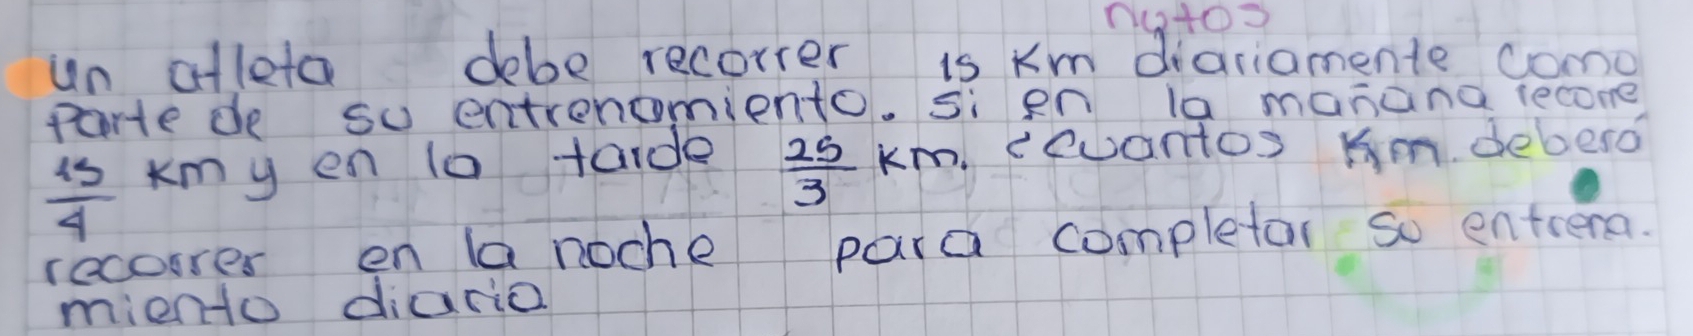 nutos
un atleta debe recorrer 15 Km diariamente como
parte de su entrenamiento. si en la mañana recorre
15/4 km y en la tarde 25/3 km. ¿cuantos Km. deberá
recorrer en la noche para completar su entrena-
miento diario